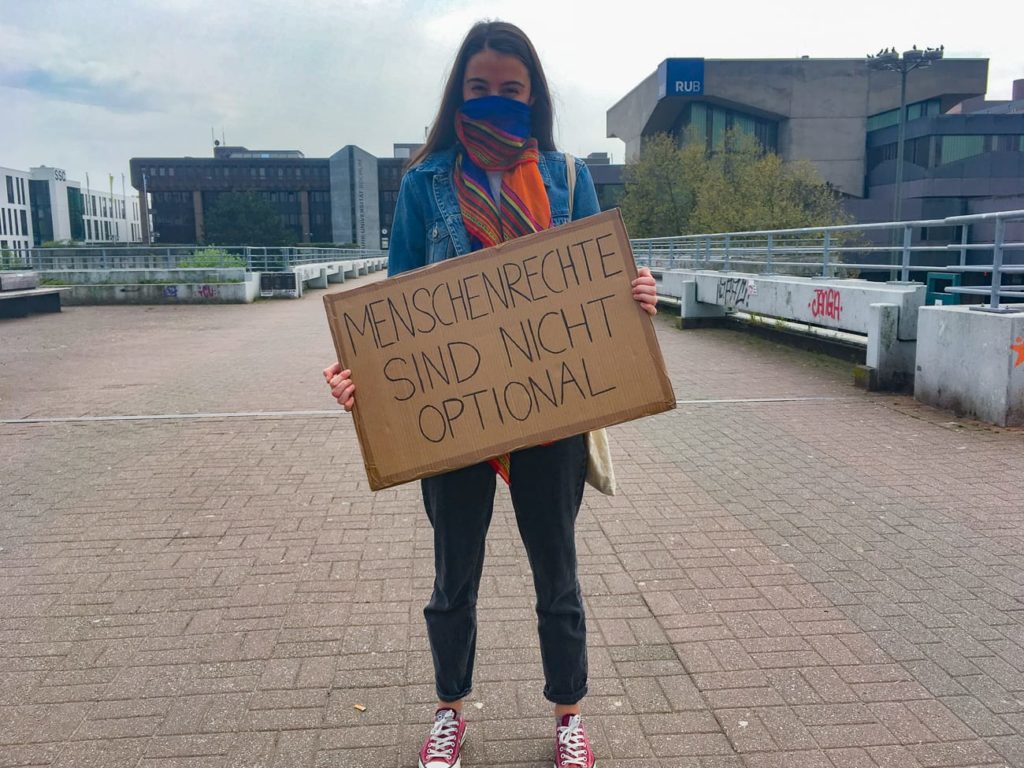 RUB
SSC
MENSCHENRECHTE
SIND NICHT
OPTIONAL
JANGA